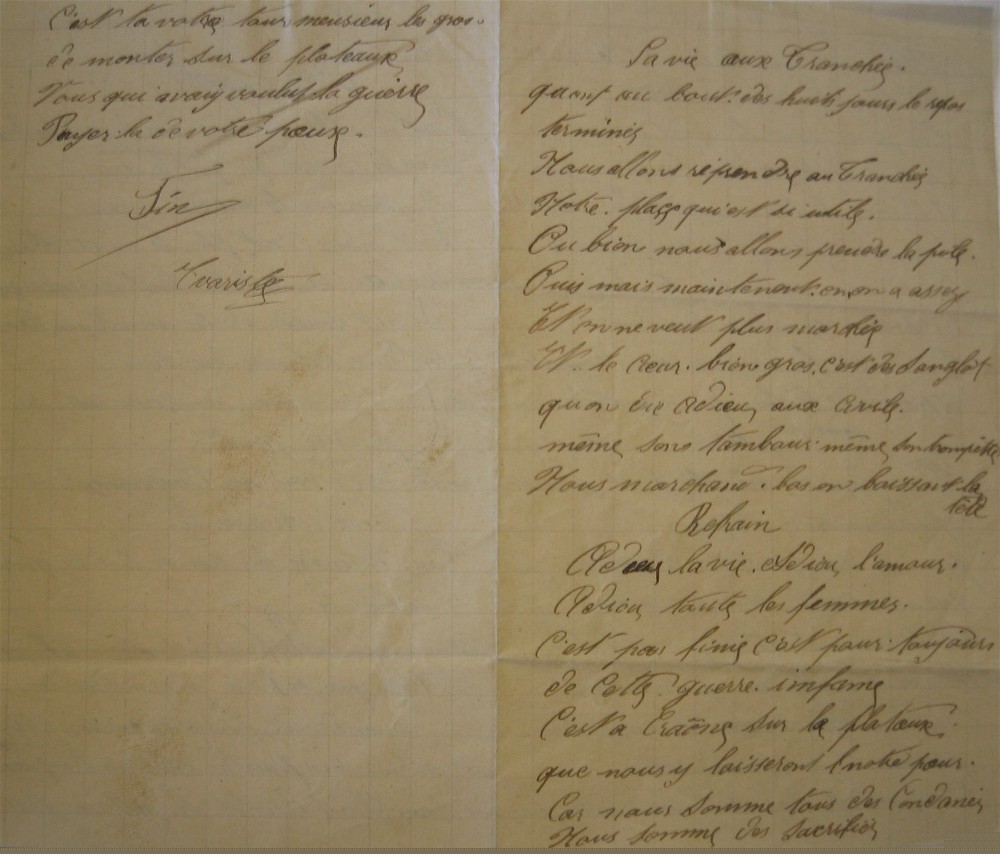 C'est ta votre tour meusieur les gros.
de monter sur le plateaux
Vous qui avaiy voulut la guerre
Payer la de votre peaux.
Fin
Evariste
La vie aux Tranchie.
quant au bout des huits jours le repos
terminés
Nous allons reprendre au Tranchis
Notre place qui est si utile.
Ou bien nous allons prendre la pile.
Ouis mais maintenent on on a assez
Et on ne veut plus marchés
Et le cœur bien gros, c'est des sanglot
quon die Adieu aux Civils.
même sans tambour même, son trompette
Nous marchand bas en baissant la
tête
Refrain
Adieu la vie. Adieu l'amour.
Adieu toute les femmes.
C'est pas finie C'est pour toujours
de Cette guerre infame
C'est a Craône sur le plateaux
que nous y laisseront l notre peau.
Car nous somme tous des Condanés
Nous somme des sacrifiés